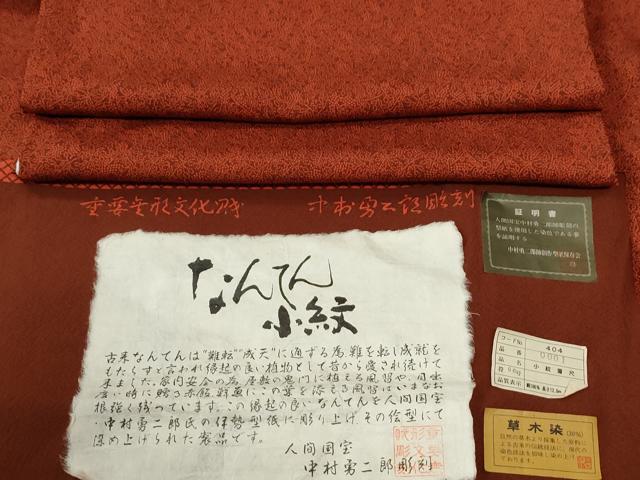 重要無形文化財 中村勇二郎彫刻
証明書
人間国宝中村勇二郎師彫刻の
型紙を使用した染色である事
を証明する
中村勇二郎師創作型紙保存会
なんてん
小紋
古来なんてんは"難転""成天"に通ずる為、難を転し成就を
もたらすと言われ縁起の良い植物として昔から愛され続けて
来ました。家内安全の為、屋敷の鬼門に植える風習や
度い時に贈る赤飯
根強く残っています。この縁起の良いなんてんを人間国宝
中村勇二郎氏の伊勢型紙に彫り上げ、その絵型にて
染め上げられた製品です。
人間国宝
中村勇二郎彫刻
コードNo. 404
品番 0001
品名 小紋着尺
品質表示
草木染